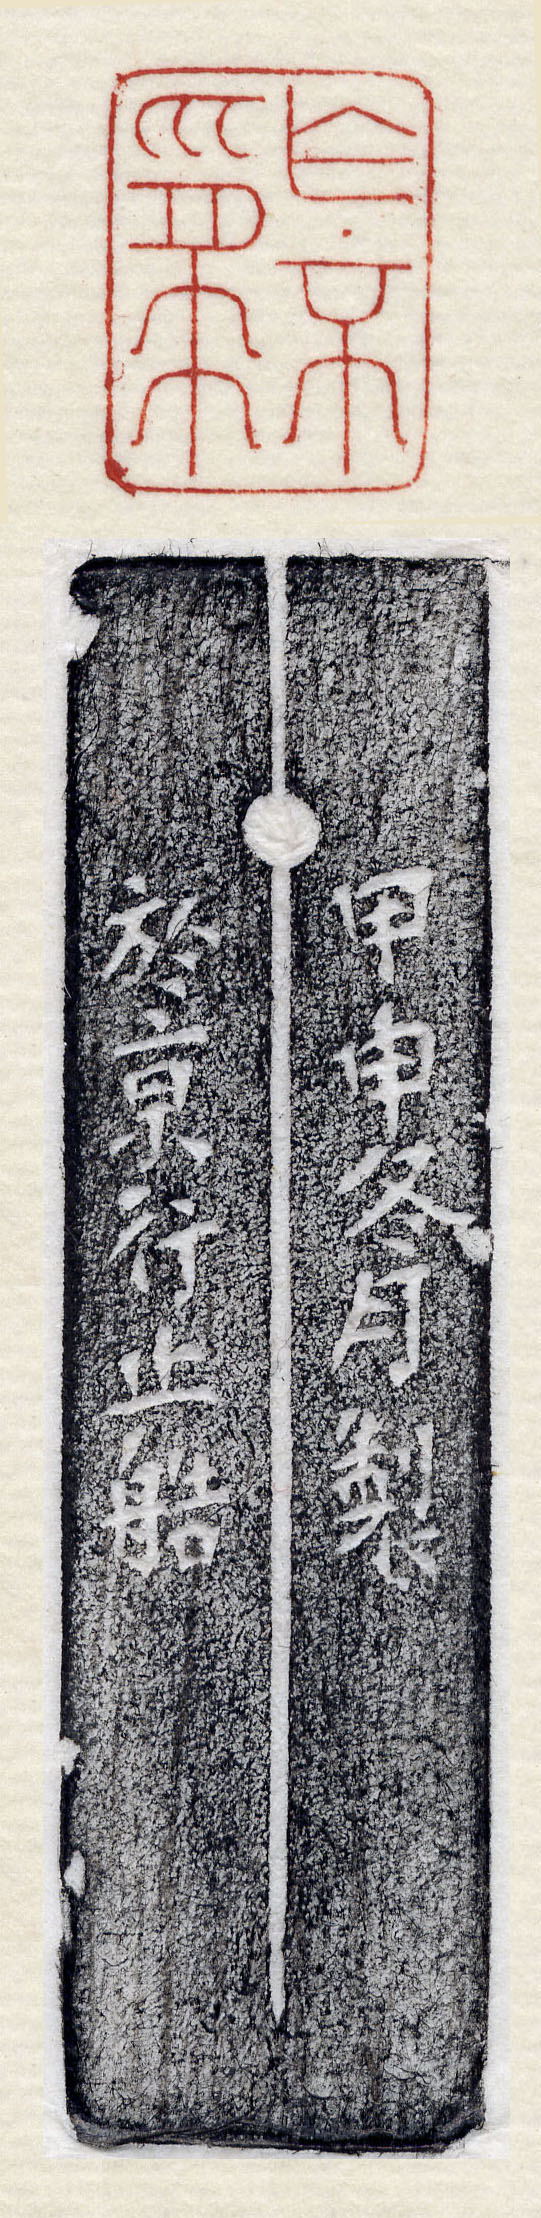 甲申冬月製
於京行止船